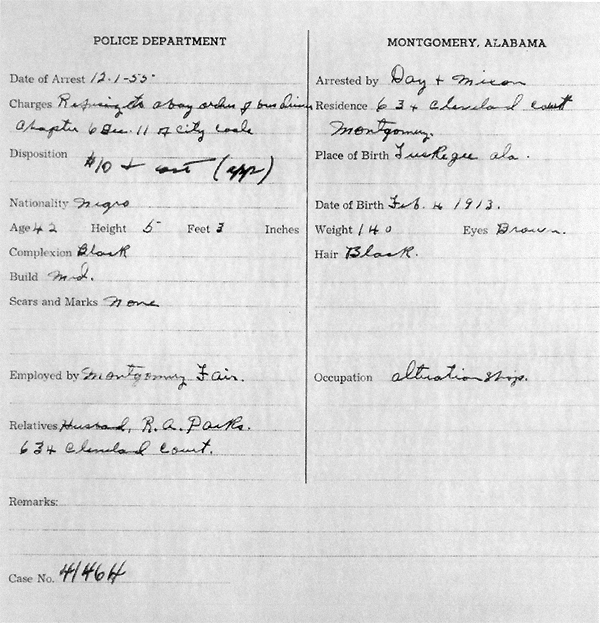 POLICE DEPARTMENT
Date of Arrest 12-1-55
Charges Refusing to obey orders of bus driver
Chapter 6 Sec. 11 of City Code
Disposition $10 + cost (app)
Nationality Negro
Age 42 Height 5 Feet 3 Inches
Complexion Black
Build Med.
Scars and Marks None
Employed by Montgomery Fair.
Relatives Husband, R. A. Parks.
634 Cleveland Court.
Remarks:
Case No. 41464
MONTGOMERY, ALABAMA
Arrested by Day + Mixon
Residence 634 Cleveland Court
Montgomery.
Place of Birth Tuskegee ala.
Date of Birth Feb. 4 1913.
Weight 140 Eyes Brown.
Hair Black.
Occupation alteration shop.